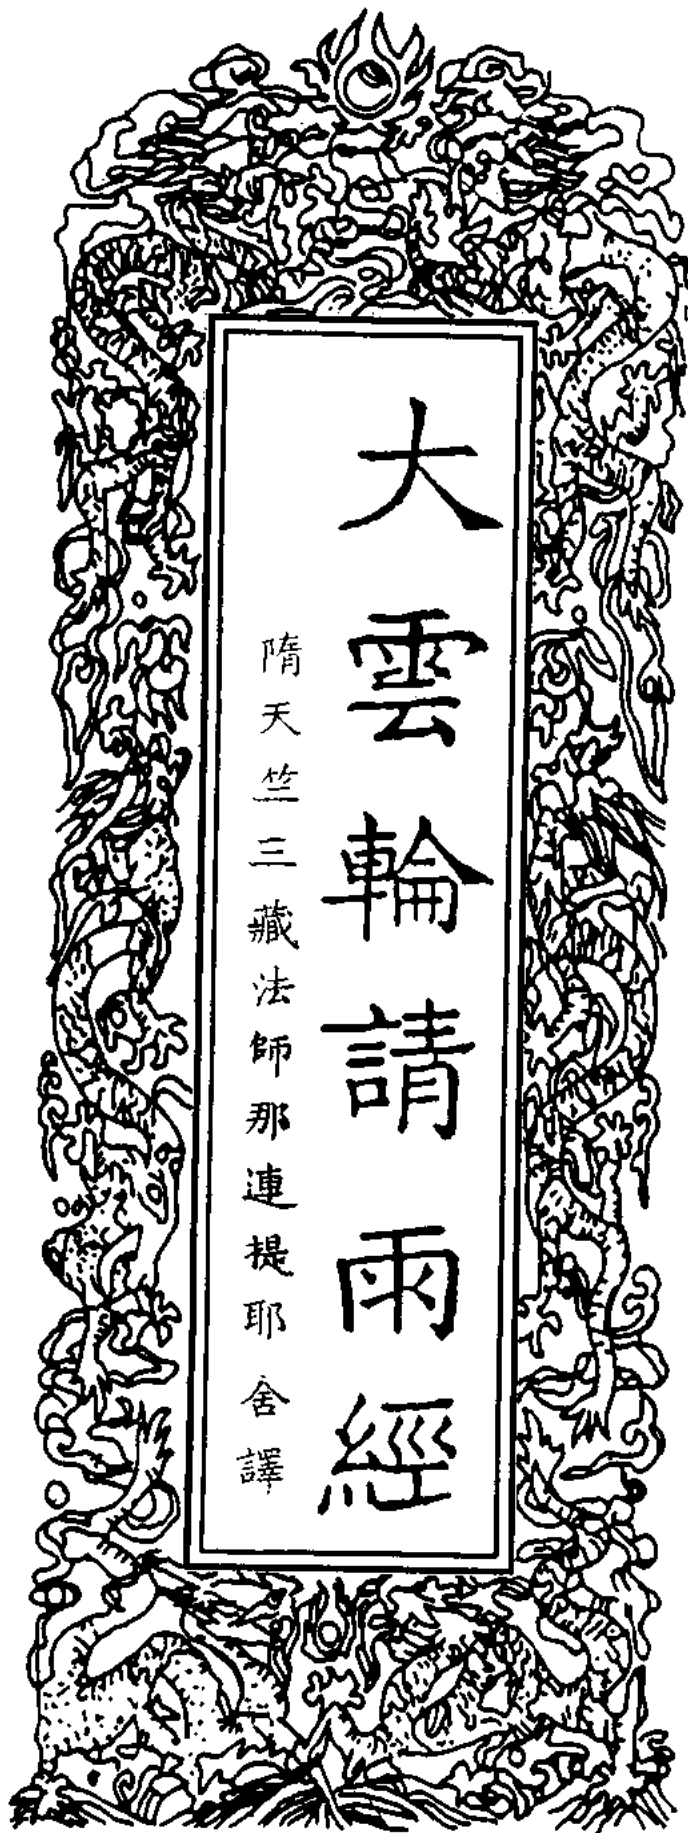 大雲輪請雨經
隋天竺三藏法師那連提耶舍譯